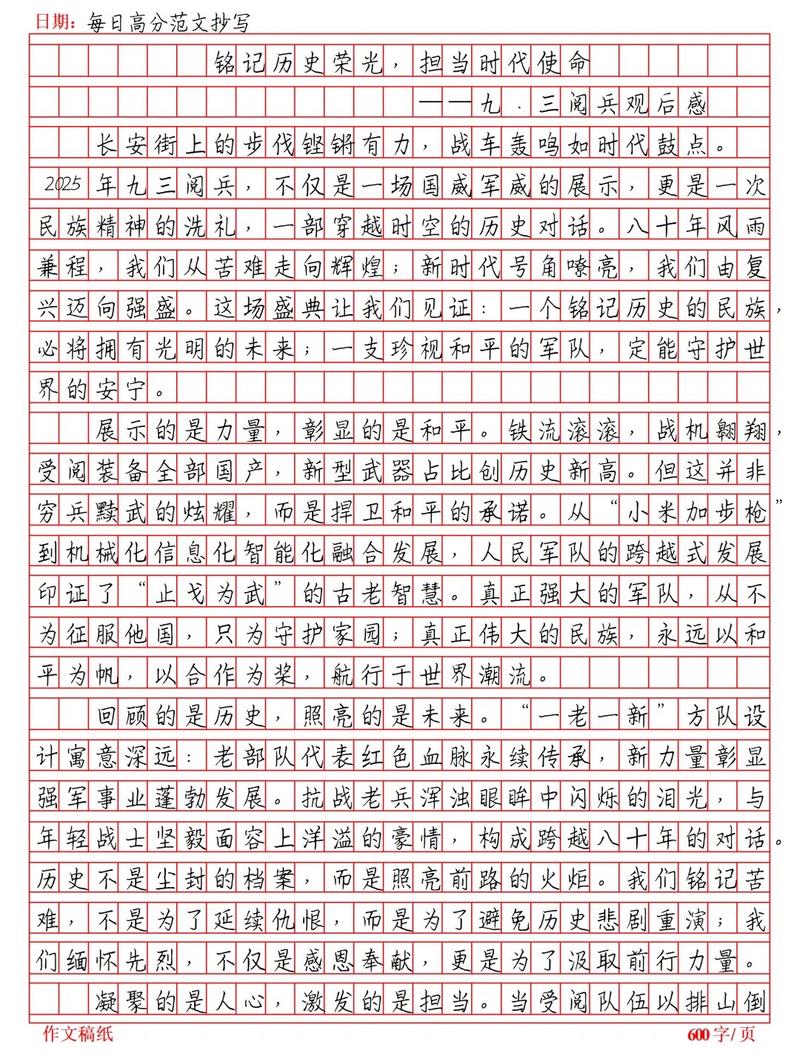 日期：每日高分范文抄写
铭记历史荣光，担当时代使命
——九·三阅兵观后感
长安街上的步伐铿锵有力，战车轰鸣如时代鼓点。
2025年九三阅兵，不仅是一场国威军威的展示，更是一次
民族精神的洗礼，一部穿越时空的历史对话。八十年风雨
兼程，我们从苦难走向辉煌；新时代号角嘹亮，我们由复
兴迈向强盛。这场盛典让我们见证：一个铭记历史的民族，
必将拥有光明的未来；一支珍视和平的军队，定能守护世
界的安宁。
展示的是力量，彰显的是和平。铁流滚滚，战机翱翔，
受阅装备全部国产，新型武器占比创历史新高。但这并非
穷兵黩武的炫耀，而是捍卫和平的承诺。从“小米加步枪”
到机械化信息化智能化融合发展，人民军队的跨越式发展
印证了“止戈为武”的古老智慧。真正强大的军队，从不
为征服他国，只为守护家园；真正伟大的民族，永远以和
平为帆，以合作为桨，航行于世界潮流。
回顾的是历史，照亮的是未来。“一老一新”方队设
计寓意深远：老部队代表红色血脉永续传承，新力量彰显
强军事业蓬勃发展。抗战老兵浑浊眼眸中闪烁的泪光，与
年轻战士坚毅面容上洋溢的豪情，构成跨越八十年的对话。
历史不是尘封的档案，而是照亮前路的火炬。我们铭记苦
难，不是为了延续仇恨，而是为了避免历史悲剧重演；我
们缅怀先烈，不仅是感恩奉献，更是为了汲取前行力量。
凝聚的是人心，激发的是担当。当受阅队伍以排山倒
作文稿纸
600字/页